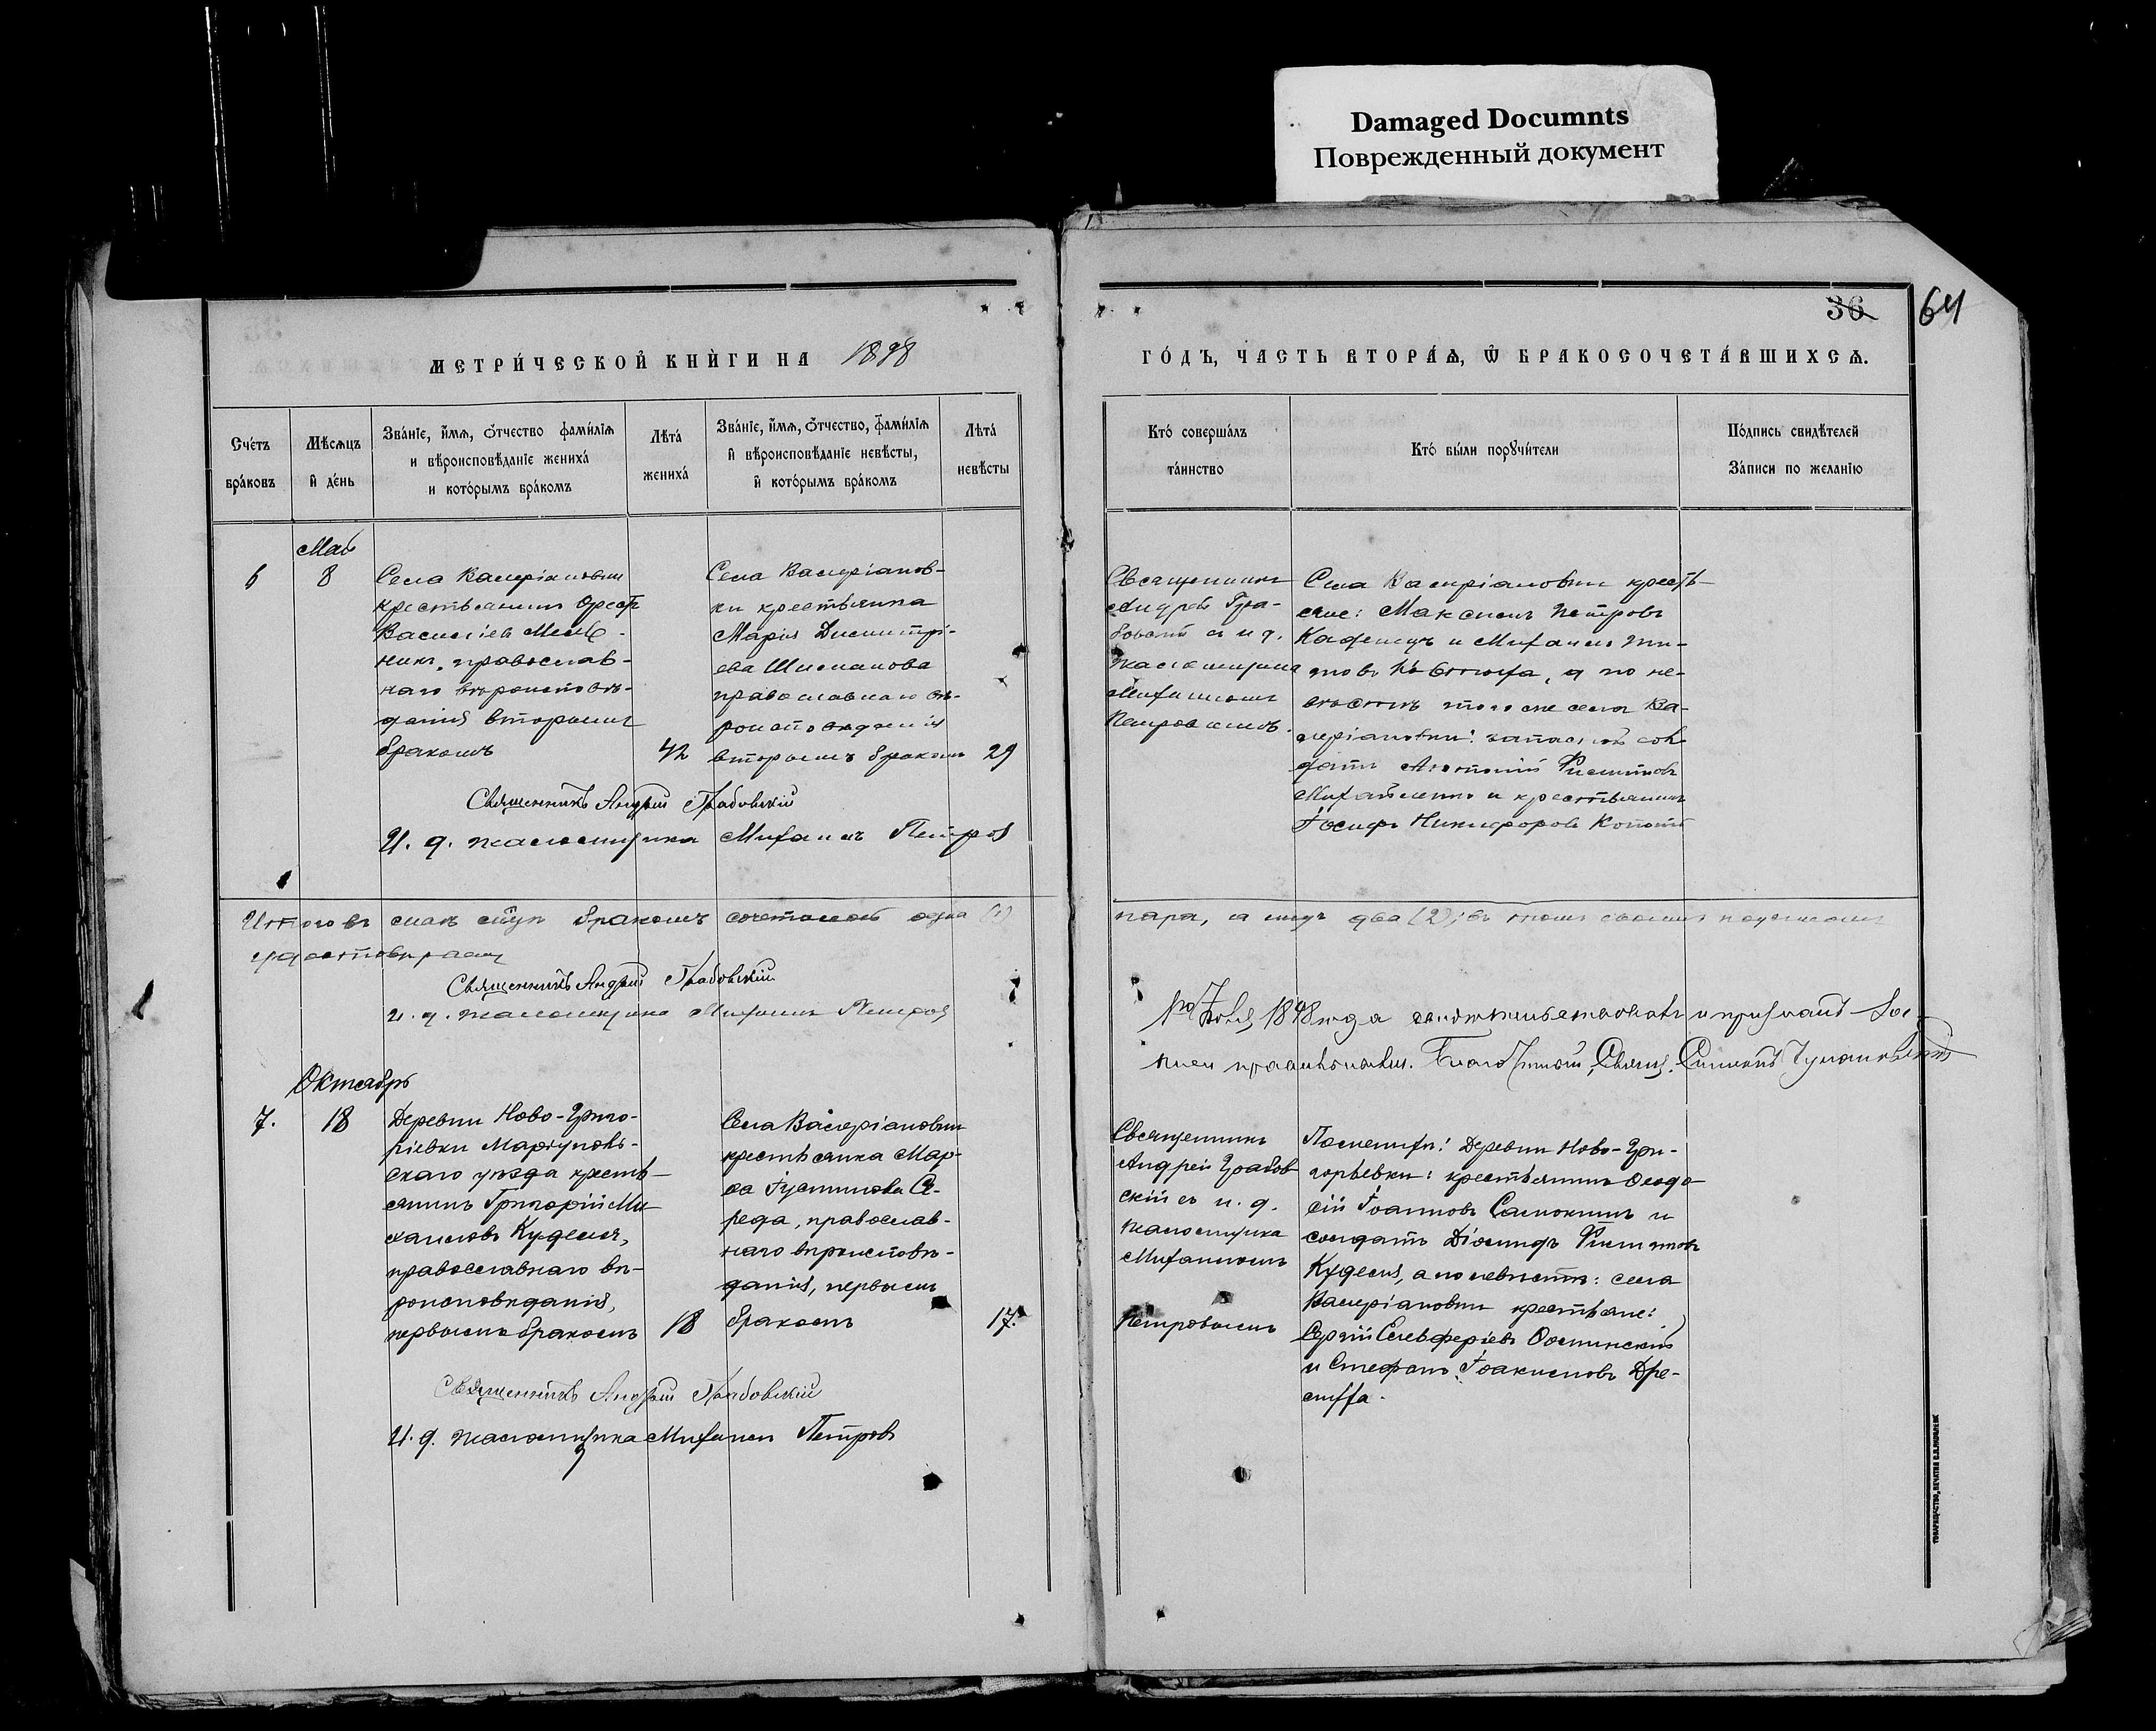 Damaged Documnts
Поврежденный документ
36 64
МЕТРИ́ЧЕСКОЙ КНИ́ГИ НА 1898
ГО́ДЪ, ЧАСТЬ ВТОРА́Ѧ, Ѿ БРАКОСОЧЕТА́ВШИХСѦ.
Сче́тъ
бра́ковъ
Мѣсѧцъ
и҆ де́нь
Зва́нїе, и҆́мѧ, ѻ҆́тчество фами́лїѧ
и вѣроисповѣ́данїе жениха́
и кото́рымъ бра́комъ
Лѣта́
жениха́
Зва́нїе, и҆́мѧ, ѻ҆́тчество, фами́лїѧ
и҆ вѣроисповѣ́данїе невѣ́сты,
и҆ кото́рымъ бра́комъ
Лѣта́
невѣ́сты
Кто́ соверша́лъ
та́инство
Кто́ бы́ли порꙋчи́тели
По́дпись свидѣ́телей
За́писи по жела́нїю
Май
6
8
Села Валеріановки
крестьянинъ Орестъ
Василіевъ Мель-
никъ, православ-
наго вѣроисповѣ-
данія вторымъ
бракомъ
42
Села Валеріанов-
ки крестьянка
Марія Димитрі-
ева Шисманова
православнаго вѣ-
роисповѣданія
вторымъ бракомъ
29
Священникъ
Андрей Гра-
бовскій съ и. д.
псаломщика
Михаиломъ
Петровымъ.
Села Валеріановки кресть-
яне: Максимъ Петровъ
и Михаилъ Ти-
товъ а по не-
вѣстѣ того же села Ва-
леріановки: запасной сол-
датъ Антоній Филипповъ
Михайленко и крестьянинъ
Іосифъ Никифоровъ
Священникъ Андрей Грабовскій
И. д. псаломщика Михаилъ Петровъ
Итого въ маѣ мѣс. бракомъ сочеталось одна (1)
пара, а лицъ два (2); въ чемъ своимъ подписомъ
удостовѣряемъ
Священникъ Андрей Грабовскій
и. д. псаломщика Михаилъ Петровъ
1898 года свидѣтельствовалъ и призналъ
Благочинный, Свящ. Симеонъ
Октябрь
7.
18
Деревни Ново-Григо-
ріевки Маріуполь-
скаго уѣзда кресть-
янинъ Григорій Ми-
хаиловъ Куделя,
православнаго вѣ-
роисповѣданія,
первымъ бракомъ
18
Села Валеріановки
крестьянка Мар-
ѳа Іустинова Се-
реда, православ-
наго вѣроисповѣ-
данія, первымъ
бракомъ
17.
Священникъ
Андрей Грабов-
скій съ и. д.
псаломщика
Михаиломъ
Петровымъ
По женихѣ: Деревни Ново-Гри-
горьевки: крестьянинъ Ѳеодо-
сій Іоанновъ Самокишъ и
солдатъ Діомидъ Филипповъ
Куделя, а по невѣстѣ: села
Валеріановки крестьяне:
Сергій Елевферіевъ
и Стефанъ Іоакимовъ Дре-
Священникъ Андрей Грабовскій
И. д. псаломщика Михаилъ Петровъ